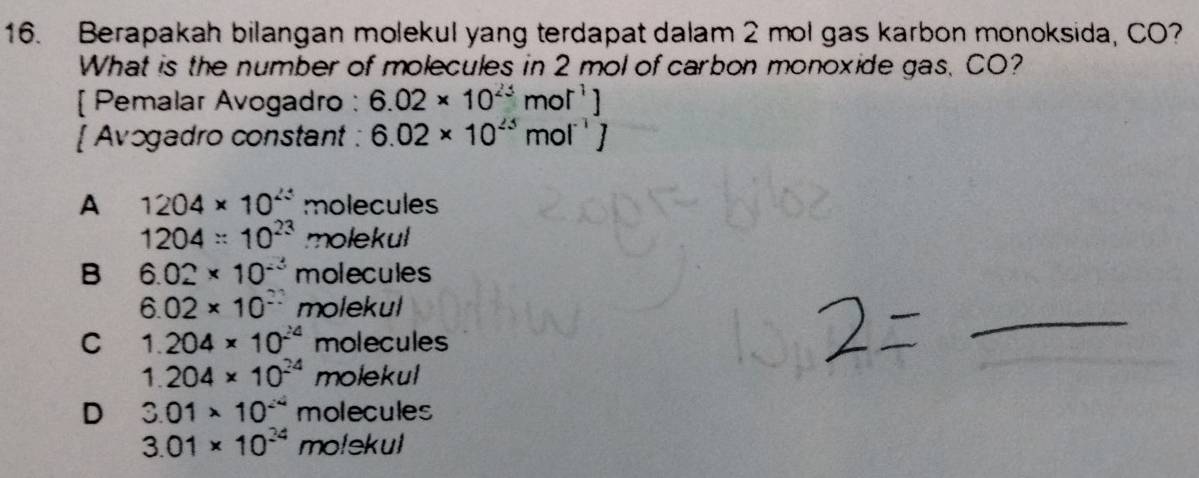 16. Berapakah bilangan molekul yang terdapat dalam 2 mol gas karbon monoksida, CO?
What is the number of molecules in 2 mol of carbon monoxide gas, CO?
[ Pemalar Avogadro : 6.02 × 10²³ mol⁻¹ ]
[ Avogadro constant : 6.02 × 10²³ mol⁻¹ ]
A 1204 × 10²³ molecules
1204 × 10²³ molekul
B 6.02 × 10²³ molecules
6.02 × 10²³ molekul
C 1.204 × 10²⁴ molecules
1.204 × 10²⁴ molekul
D 3.01 × 10²⁴ molecules
3.01 × 10²⁴ molekul
2 = —